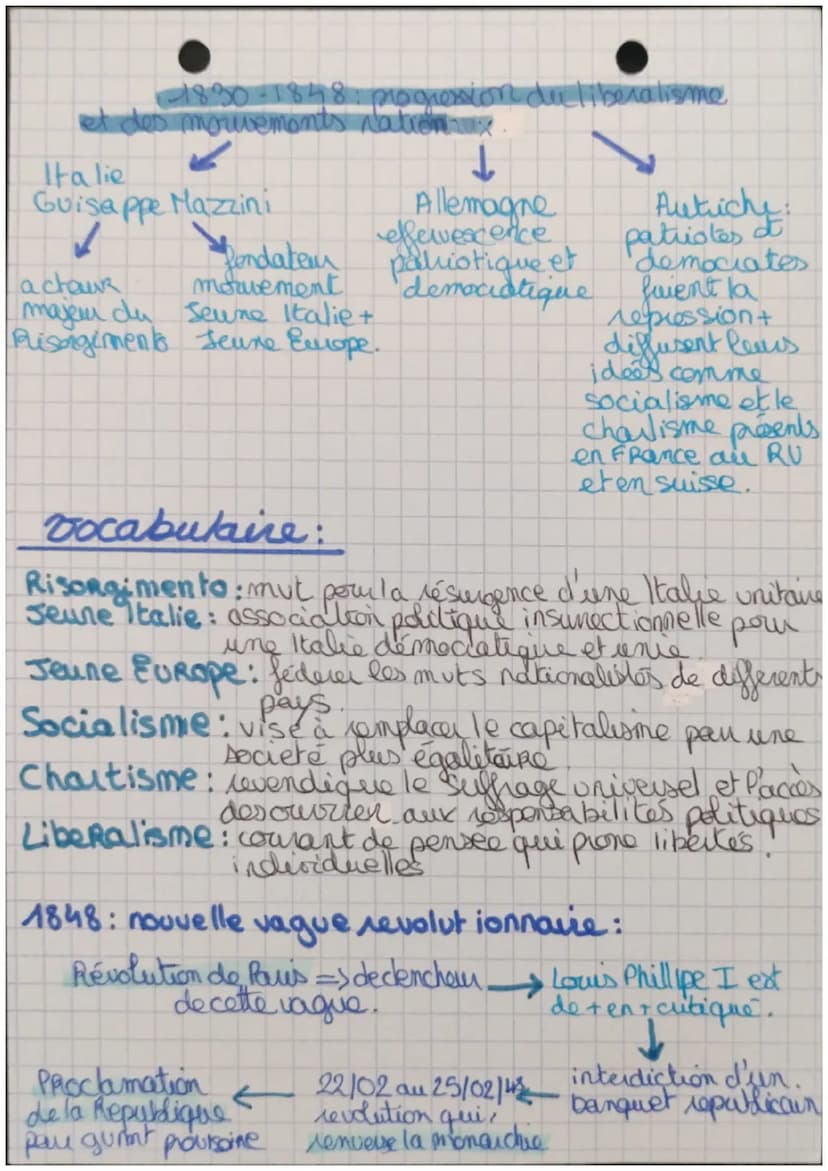 1830-1848: progression du liberalisme
et des mouvements nationaux.
Italie
Guiseppe Mazzini
acteur
majeur du
Risorgimento
fondateur
mouvement
Jeune Italie +
Jeune Europe.
Allemagne
effervescence
patriotique et
democratique
Autriche:
patriotes et
democrates
fuient la
repression +
diffusent leurs
idées comme
socialisme et le
chartisme présents
en FRance au RU
et en suisse.
Vocabulaire:
Risorgimento: mvt pour la résurgence d'une Italie unitaire
Jeune Italie: association politique insurrectionnelle pour
une Italie démocratique et unie.
Jeune EUROPE: féderer les mvts nationalistes de differents
pays.
Socialisme: vise à remplacer le capitalisme par une
societé plus égalitaire.
Chartisme: revendique le suffrage universel et l'accès
des ouvrier aux responsabilités politiques
LibeRalisme: courant de pensée qui prone libertés
individuelles.
1848: nouvelle vague revolutionnaire:
Révolution de Paris => declencheur
de cette vague.
Louis Phillipe I est
de + en + critiqué.
interdiction d'un
banquet republicain
22/02 au 25/02/48
revolution qui
renverse la monarchie
PRoclamation
de la Republique
par gvrmt provisoire